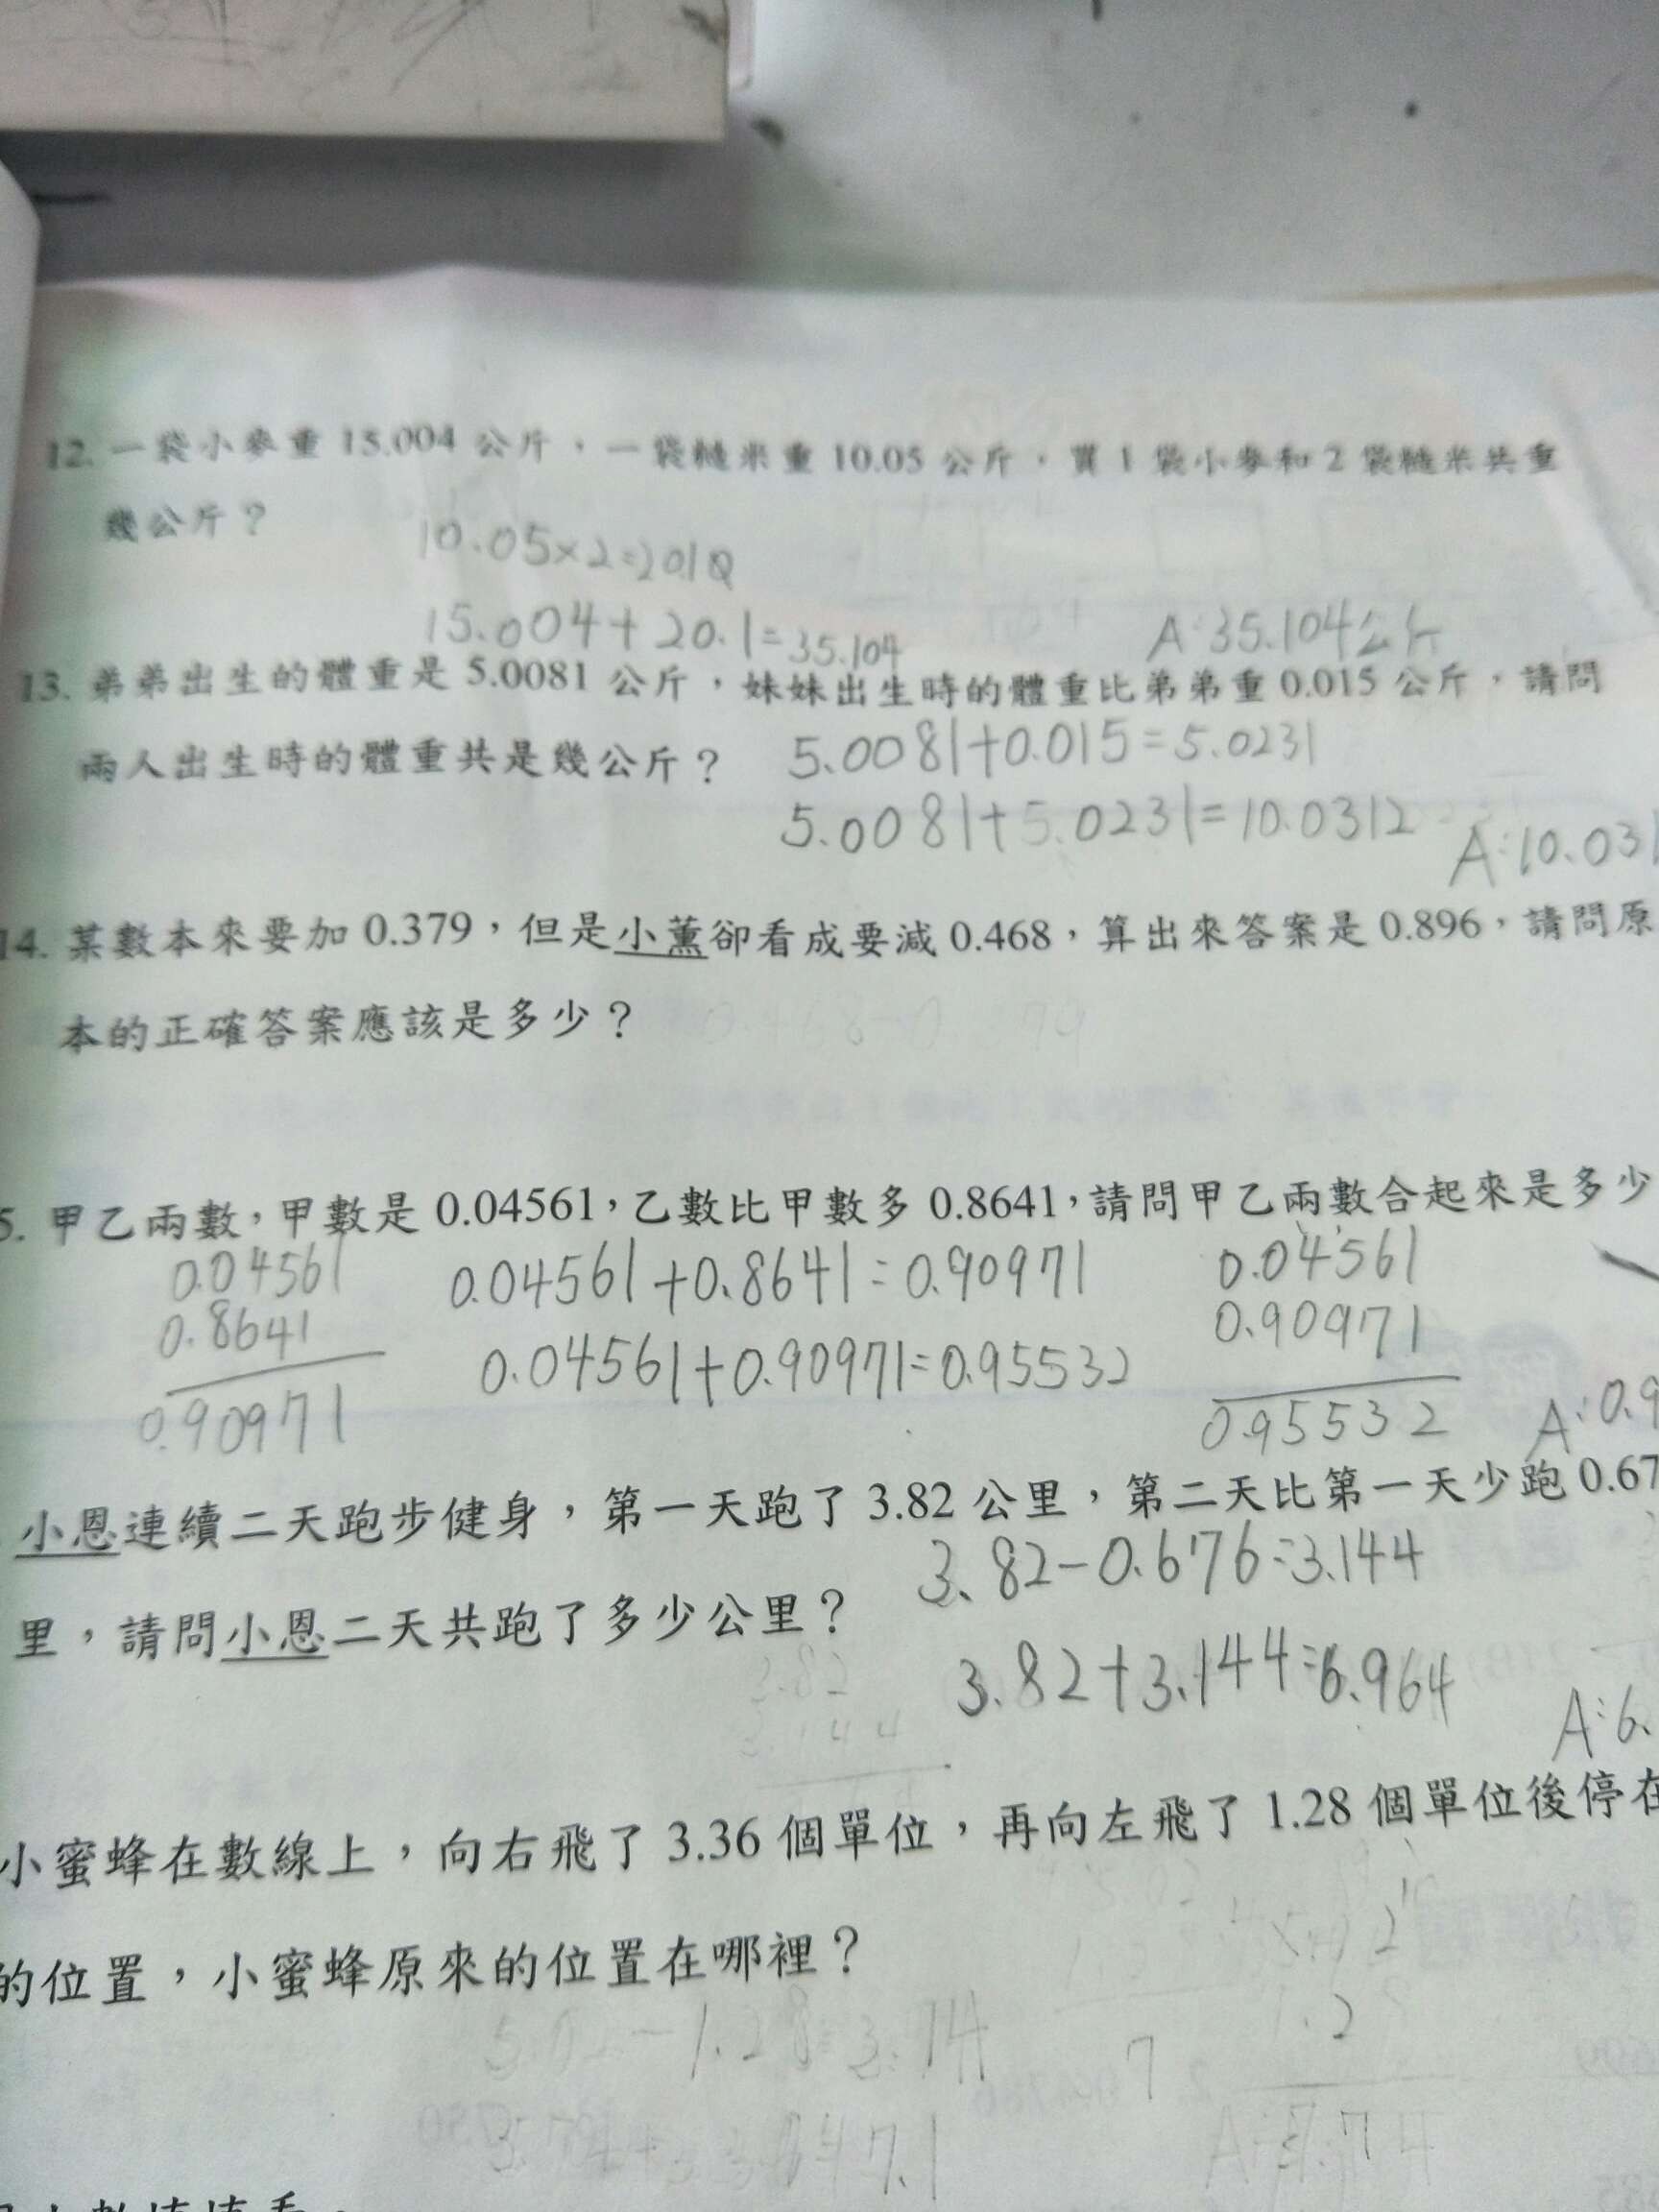 12. 一袋小麥重 15.004 公斤，一袋糙米重 10.05 公斤，買 1 袋小麥和 2 袋糙米共重
幾公斤？
10.05×2=20.10
15.004+20.1=35.104
A:35.104公斤
13. 弟弟出生的體重是 5.0081 公斤，妹妹出生時的體重比弟弟重 0.015 公斤，請問
兩人出生時的體重共是幾公斤？
5.0081+0.015=5.0231
5.0081+5.0231=10.0312
A:10.031
14. 某數本來要加 0.379，但是小薰卻看成要減 0.468，算出來答案是 0.896，請問原
本的正確答案應該是多少？
5. 甲乙兩數，甲數是 0.04561，乙數比甲數多 0.8641，請問甲乙兩數合起來是多少
0.04561
0.8641
0.90971
0.04561+0.8641=0.90971
0.04561+0.90971=0.95532
0.04561
0.90971
0.95532
A:0.9
小恩連續二天跑步健身，第一天跑了 3.82 公里，第二天比第一天少跑 0.67
里，請問小恩二天共跑了多少公里？
3.82-0.676=3.144
3.82+3.144=6.964
A:6.
3.82
小蜜蜂在數線上，向右飛了 3.36 個單位，再向左飛了 1.28 個單位後停在
的位置，小蜜蜂原來的位置在哪裡？